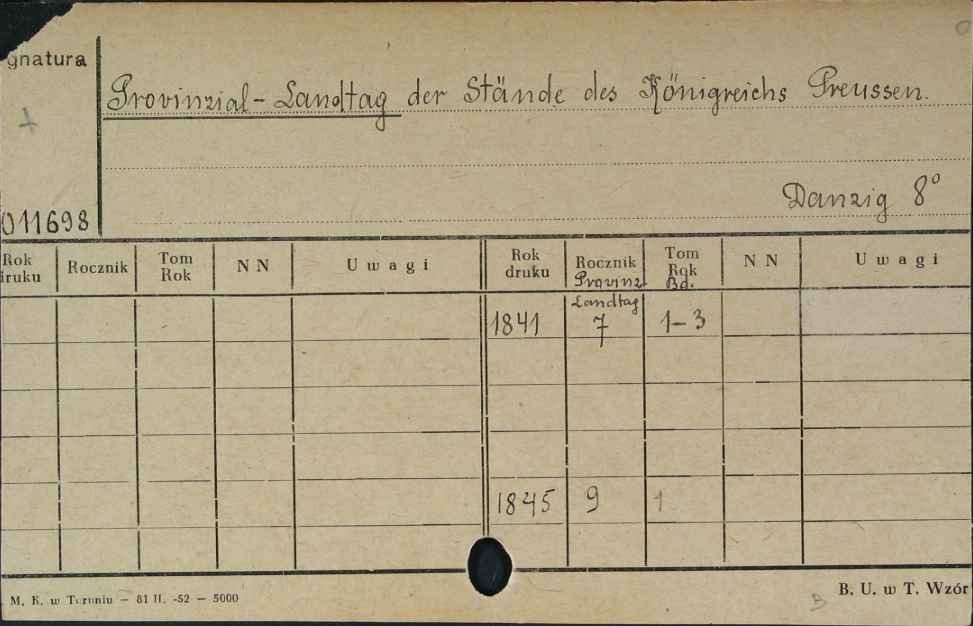 gnatura
Provinzial-Landtag der Stände des Königreichs Preussen.
+
Danzig 8°
011698
Rok druku Rocznik Tom Rok N N Uwagi Rok druku Rocznik Provinz Landtag Tom Rok Bd. N N Uwagi
1841 7 1-3
1845 9 1
M. K. w Toruniu — 81 II. -52 — 5000
B
B. U. w T. Wzór